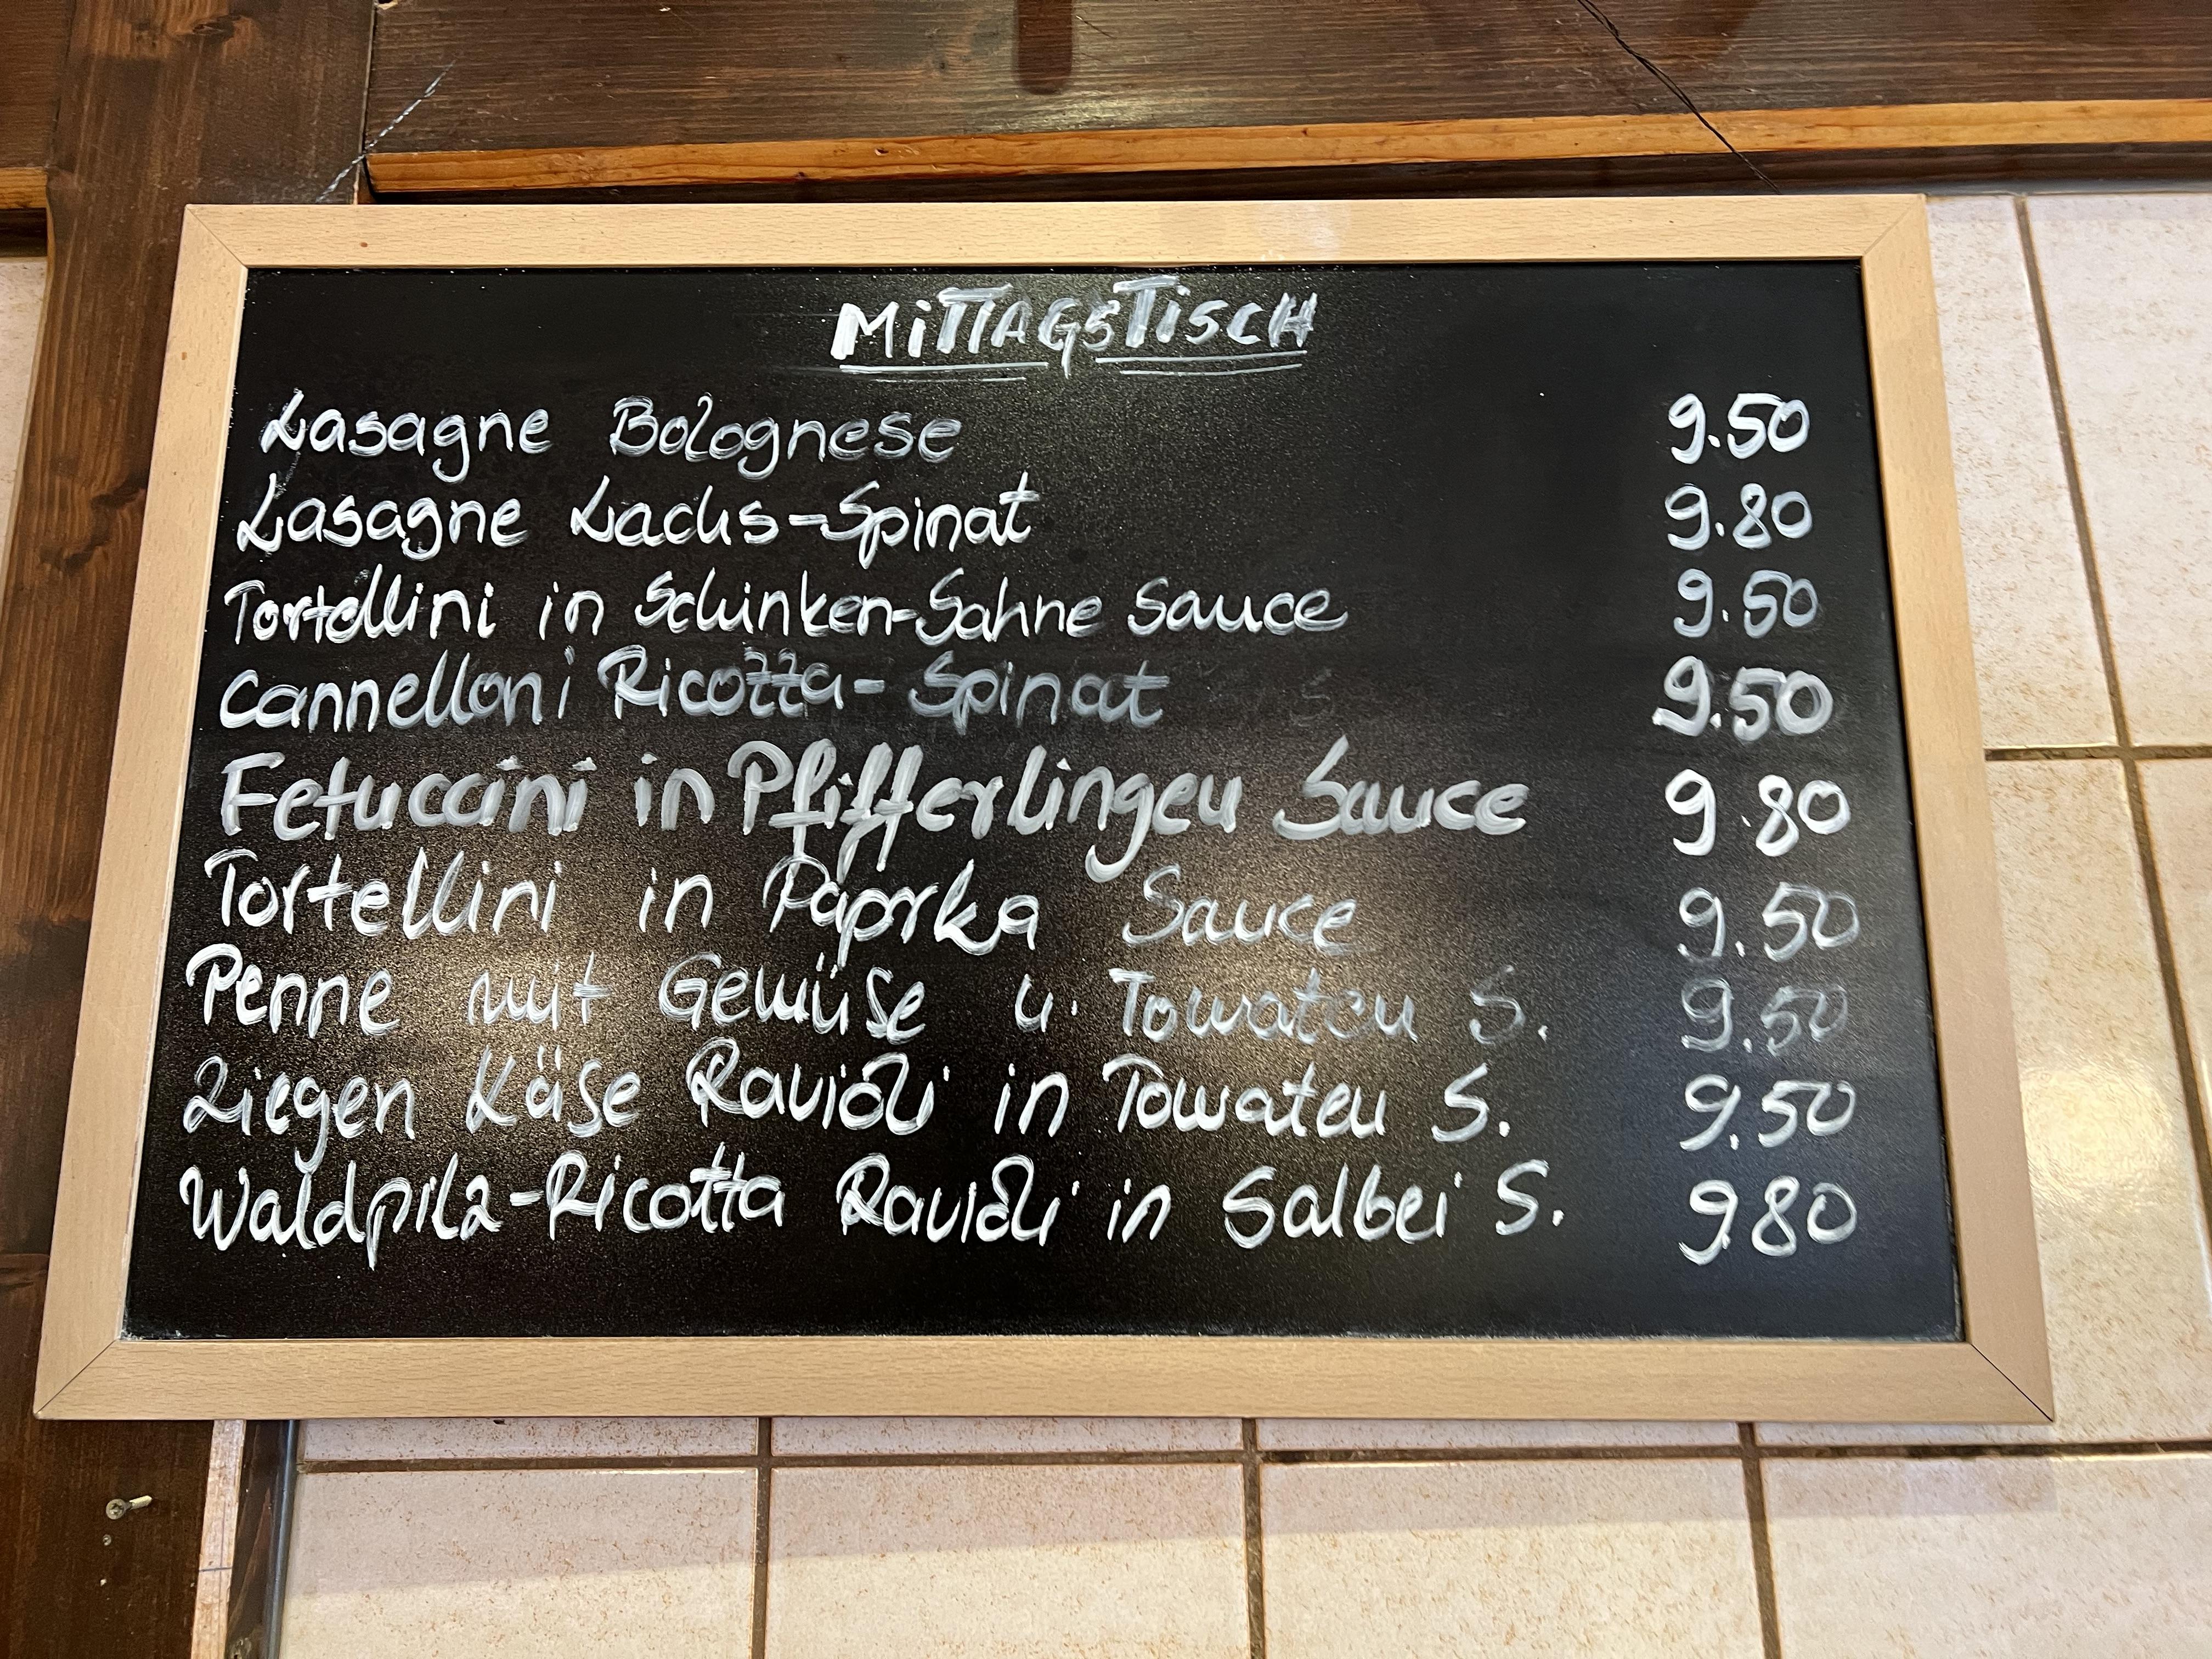 MiTTAGSTiSCH
Lasagne Bolognese 9.50
Lasagne Lachs-Spinat 9.80
Tortellini in Schinken-Sahne Sauce 9.50
Cannelloni Ricotta-Spinat 9.50
Fetuccini in Pfifferlingen Sauce 9.80
Tortellini in Paprka Sauce 9.50
Penne mit Gemüse u. Tomaten S. 9.50
Ziegen Käse Ravioli in Tomaten S. 9.50
Waldpilz-Ricotta Ravioli in Salbei S. 9.80